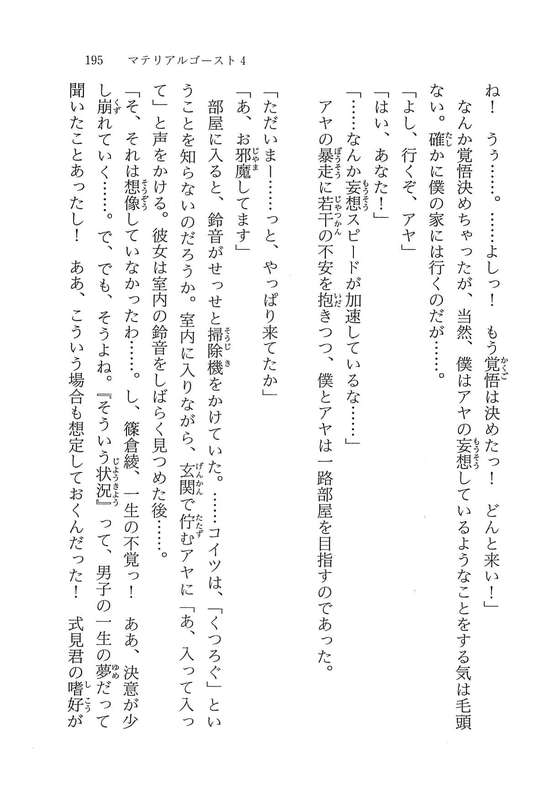 195　マテリアルゴースト4
ね！　うぅ……。……よしっ！　もう覚悟は決めたっ！　どんと来い！」
　なんか覚悟決めちゃったが、当然、僕はアヤの妄想しているようなことをする気は毛頭
ない。確かに僕の家には行くのだが……。
「よし、行くぞ、アヤ」
「はい、あなた！」
「……なんか妄想スピードが加速しているな……」
　アヤの暴走に若干の不安を抱きつつ、僕とアヤは一路部屋を目指すのであった。
「ただいまー……っと、やっぱり来てたか」
「あ、お邪魔してます」
　部屋に入ると、鈴音がせっせと掃除機をかけていた。……コイツは、「くつろぐ」とい
うことを知らないのだろうか。室内に入りながら、玄関で佇むアヤに「あ、入って入っ
て」と声をかける。彼女は室内の鈴音をしばらく見つめた後……。
「そ、それは想像していなかったわ……。し、篠倉綾、一生の不覚っ！　ああ、決意が少
し崩れていく……。で、でも、そうよね。『そういう状況』って、男子の一生の夢だって
聞いたことあったし！　ああ、こういう場合も想定しておくんだった！　式見君の嗜好が